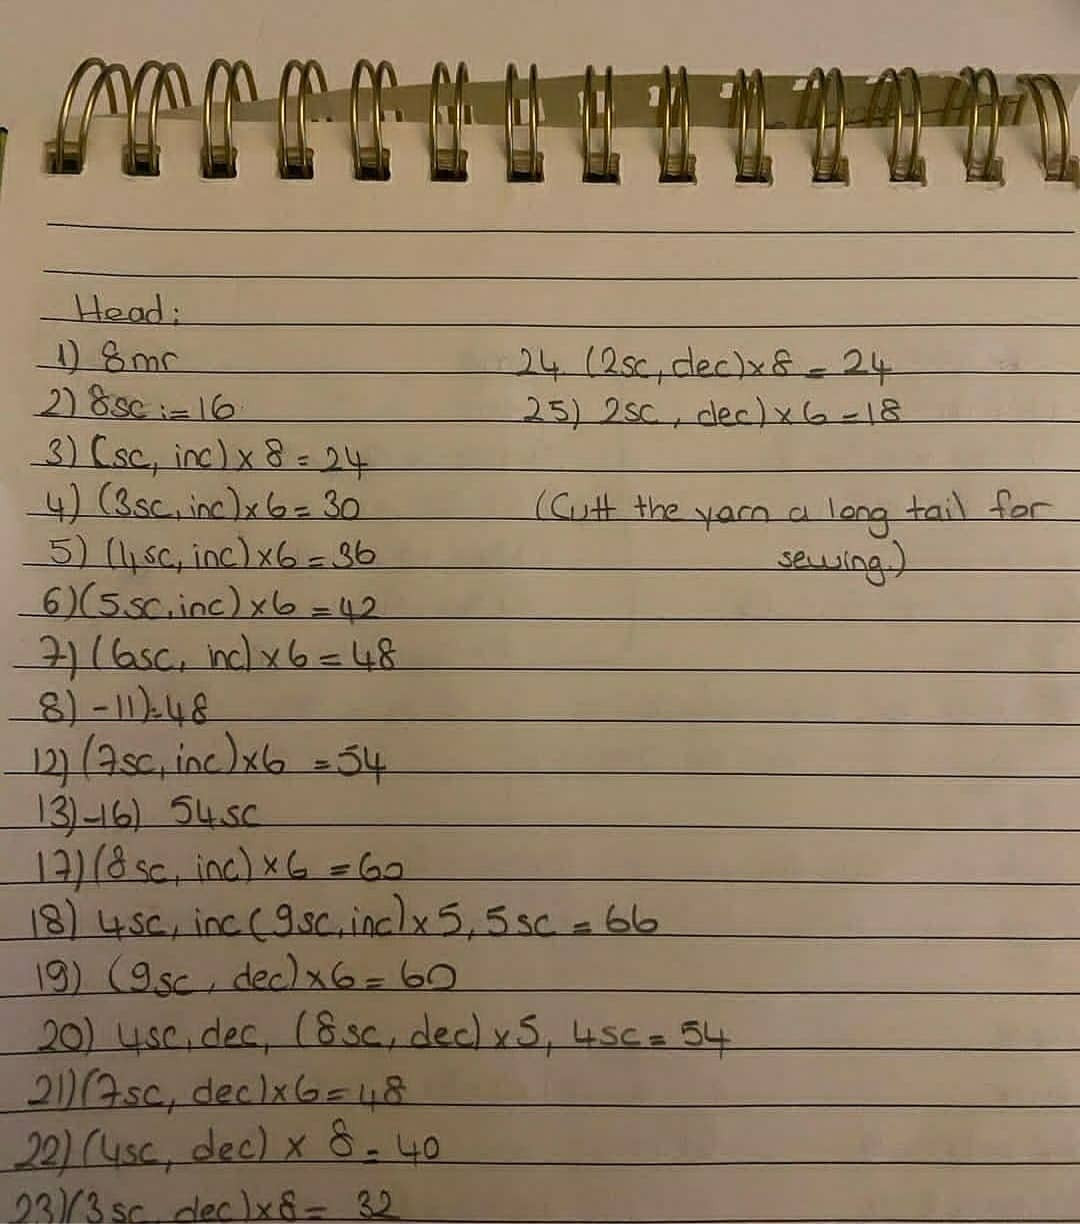 Head:
1) 8mr
2) 8sc := 16
3) (sc, inc) x 8 = 24
4) (3sc, inc) x 6 = 30
5) (4sc, inc) x 6 = 36
6) (5sc, inc) x 6 = 42
7) (6sc, inc) x 6 = 48
8) -11)=48
12) (7sc, inc) x 6 = 54
13)-16) 54sc
17) (8sc, inc) x 6 = 60
18) 4sc, inc (9sc, inc) x 5, 5sc = 66
19) (9sc, dec) x 6 = 60
20) 4sc, dec, (8sc, dec) x 5, 4sc = 54
21) (7sc, dec) x 6 = 48
22) (4sc, dec) x 8 = 40
23) (3sc, dec) x 8 = 32
24. (2sc, dec) x 8 = 24
25) 2sc, dec) x 6 = 18
(Cutt the yarn a long tail for
sewing.)